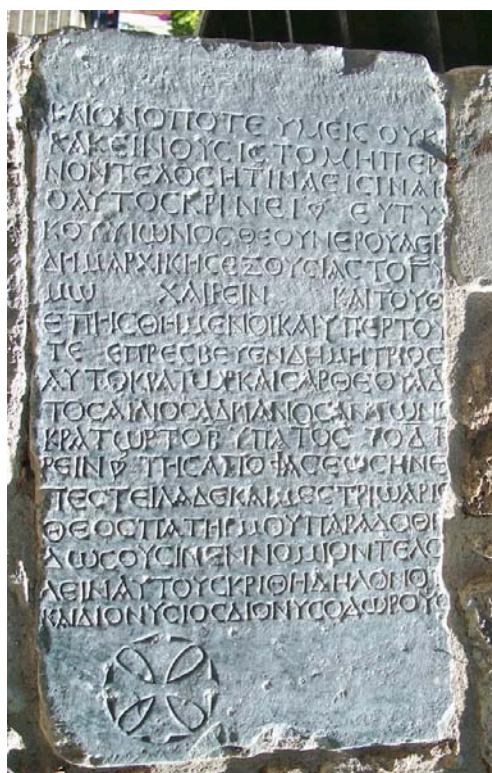 ΚΑΙΟΝΟΠΟΤΕ ΥΜΕΙϹ ΟΥΚ
ΚΑΚΕΙΝΟΥϹΙϹΤΟΜΗΠΕΡ
ΝΟΝΤΕΛΟϹΗΤΙΝΑΕΙϹΙΝΑΙ
ΟΑΥΤΟϹΚΡΙΝΕΙ ΕΥΤΥ
ΚΟΥΥΙΩΝΟϹΘΕΟΥΝΕΡΟΥΑΕΓ
ΔΗΜΑΡΧΙΚΗϹΕΞΟΥϹΙΑϹΤΟ
ΜΩ ΧΑΙΡΕΙΝ ΚΑΙΤΟΥΘ
ΕΠΗϹΘΗΜΕΝΟΙΚΑΙΥΠΕΡΤΟΥ
ΤΕ ΕΠΡΕϹΒΕΥΕΝΔΗΜΗΤΡΙΟϹ
ΑΥΤΟΚΡΑΤΩΡΚΑΙϹΑΡΘΕΟΥΑΔ
ΤΟϹΑΙΛΙΟϹΑΔΡΙΑΝΟϹΑΝΤΩΝΙ
ΚΡΑΤΩΡΤΟΒ ΥΠΑΤΟϹ ΤΟΔΠ
ΡΕΙΝ ΤΗϹΑΠΟΦΑϹΕΩϹΗΝΕ
ΠΕϹΤΕΙΛΑΔΕΚΑΙΜΕϹΤΡΙΩΑΡΙϹ
ΘΕΟϹΠΑΤΗΡΜΟΥΠΑΡΑΔΕΘΗ
ΔΩϹΟΥϹΙΝΕΝΝΟΜΙΟΝΤΕΛΟ
ΛΕΙΝΑΥΤΟΥϹΚΡΙΘΗΔΗΛΟΝΟΤ
ΚΑΙΔΙΟΝΥϹΙΟϹΔΙΟΝΥϹΟΔΩΡΟΥΘ